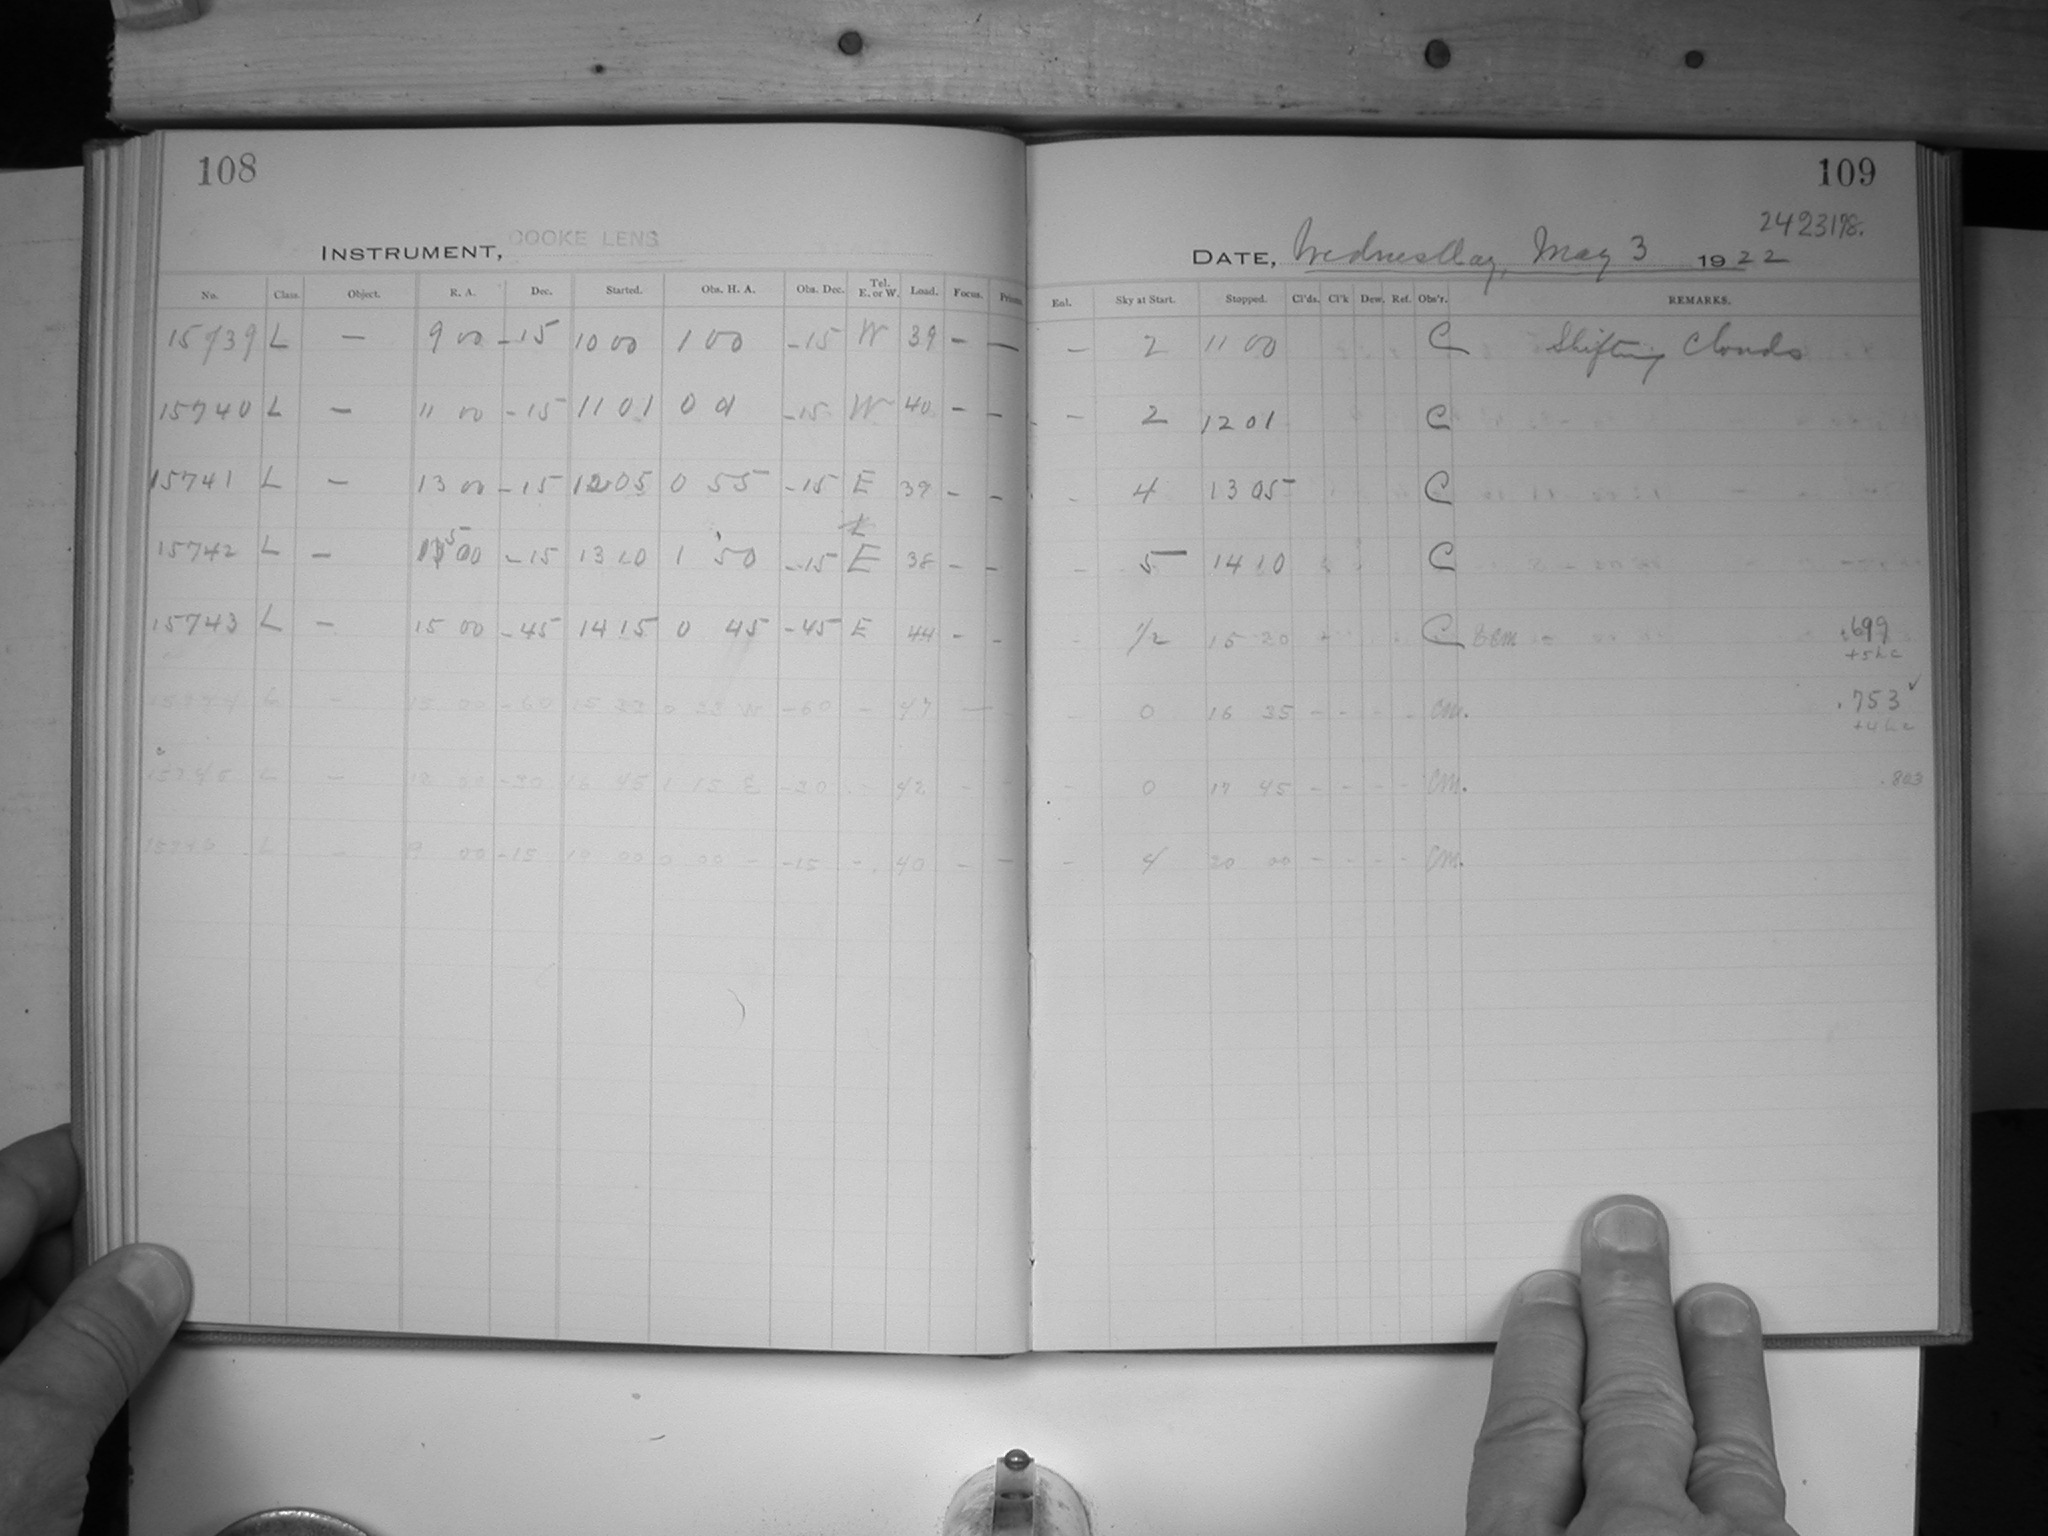 108
INSTRUMENT, COOKE LENS
No. Class. Object. R. A. Dec. Started. Obs. H. A. Obs. Dec. Tel. E. or W. Load. Focus.
15739 L — 9 00 -15 10 00 1 00 -15 W 39 - —
15740 L — 11 00 -15 11 01 0 01 -15 W 40 - -
15741 L - 13 00 -15 12 05 0 55 -15 E 39 - -
15742 L - 15 00 -15 13 10 1 50 -15 E 38 - -
15743 L - 15 00 -45 14 15 0 45 -45 E 44 - -
- 15 00 -60 15 33 0 33 W -60 - 47 -
15745 L - 18 00 -30 16 45 1 15 E -30 - 42 - -
L - 19 00 -15 19 00 0 00 - -15 - 40 - -
109
2423178.
DATE, Wednesday, May 3 1922
Eol. Sky at Start. Stopped. Cl'ds. Cl'k Dew. Ref. Obs'r. REMARKS.
- 2 11 00 C Shifting Clouds
- 2 12 01 C
- 4 13 05 C
- 5 14 10 C
- 1/2 15 20 C .699
- 0 16 35 - - - - CM. .753 ✓
- 0 17 45 - - - - CM. .803
- 4 20 00 - - - - CM.